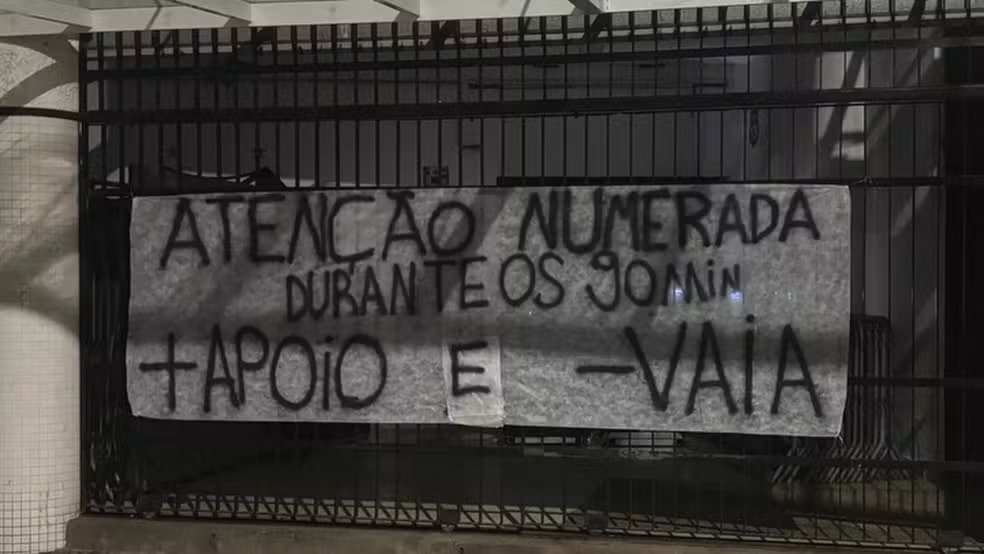 ATENÇÃO NUMERADA
DURANTE OS 90 MIN
+ APOIO E - VAIA